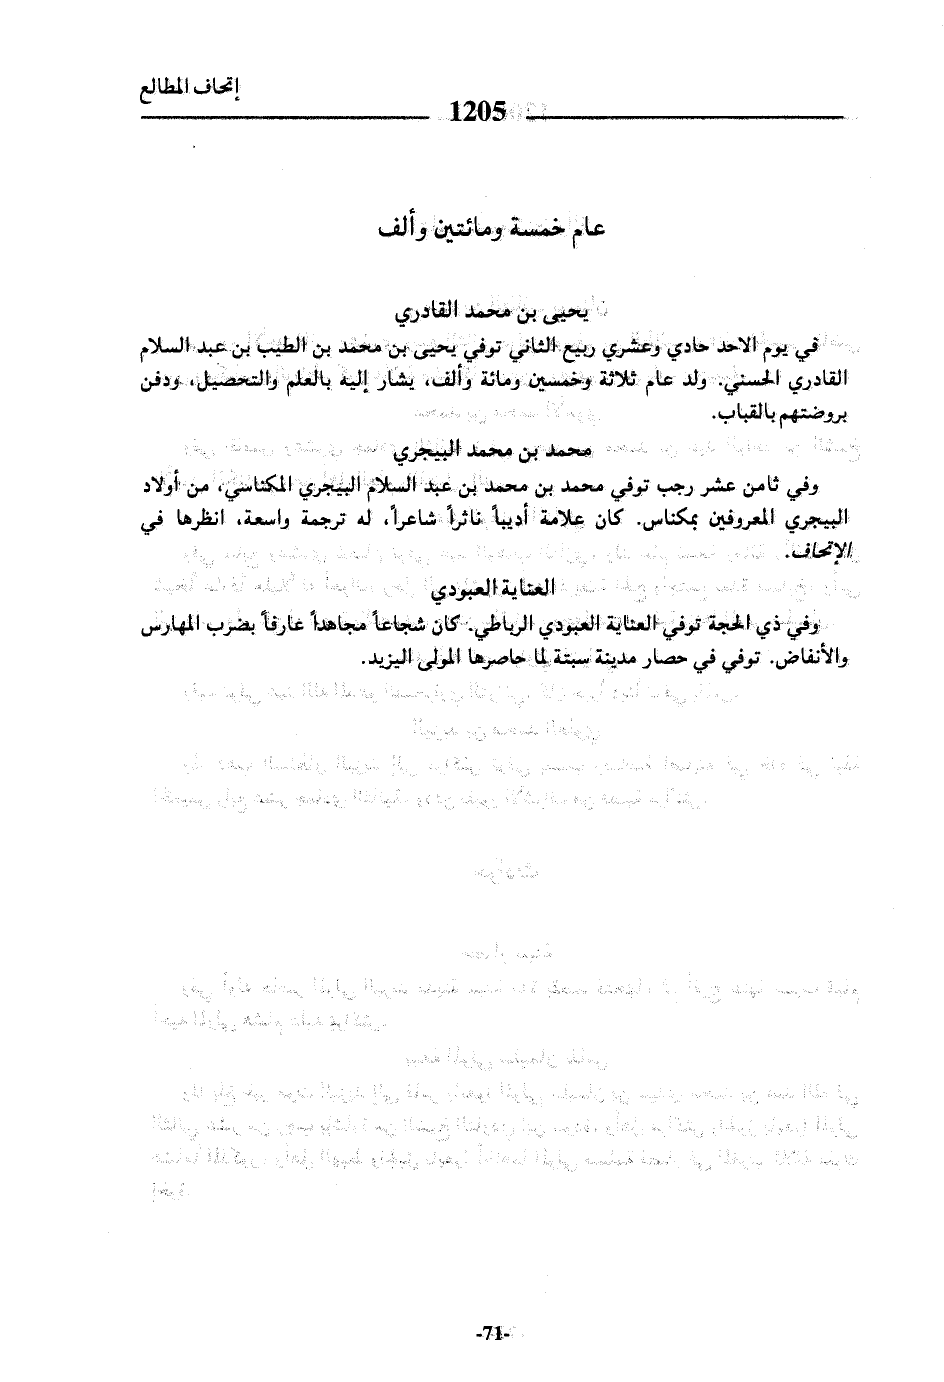 إتحاف المطالع
1205
عام خمسة ومائتين وألف
يحيى بن محمد القادري
في يوم الاحد حادي وعشري ربيع الثاني توفي يحيى بن محمد بن الطيب بن عبد السلام
القادري الحسني. ولد عام ثلاثة وخمسين ومائة وألف، يشار إليه بالعلم والتحصيل، ودفن
بروضتهم بالقباب.
محمد بن محمد البيجري
وفي ثامن عشر رجب توفي محمد بن محمد بن عبد السلام البيجري المكناسي، من أولاد
البيجري المعروفين بمكناس. كان علامة أديباً ناثراً شاعراً، له ترجمة واسعة، انظرها في
الإتحاف.
العناية العبودي
وفي ذي الحجة توفي العناية العبودي الرباطي. كان شجاعاً مجاهداً عارفاً بضرب المهارس
والأنفاض. توفي في حصار مدينة سبتة لما حاصرها المولى اليزيد.
-71-